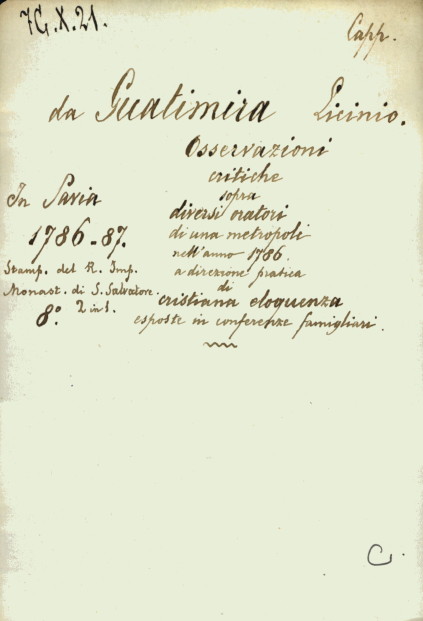 7G.X.21.
Capp.
da Guatimira Licinio.
Osservazioni
critiche
sopra
diversi oratori
di una metropoli
nell'anno 1786.
a direzione pratica
di
cristiana eloquenza
esposte in conferenze famigliari.
In Pavia
1786-87.
Stamp. del R. Imp.
Monast. di S. Salvatore.
8.° 2 in 1.
C.